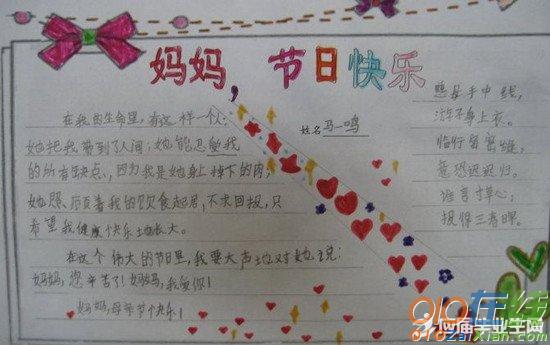 妈妈,节日快乐
姓名 马一鸣
在我的生命里,有这样一个人:
她把我带到了人间;她能忍受我
的所有缺点,因为我是她身上掉下的肉;
她照顾着我的饮食起居,不求回报,只
希望我健康快乐地长大。
在这个伟大的节日里,我要大声地对她说:
妈妈,您辛苦了!妈妈,我爱你!
妈妈,母亲节快乐!
慈母手中线,
游子身上衣。
临行密密缝,
意恐迟迟归。
谁言寸草心,
报得三春晖。
910在线
应届毕业生网
910zaixian.com